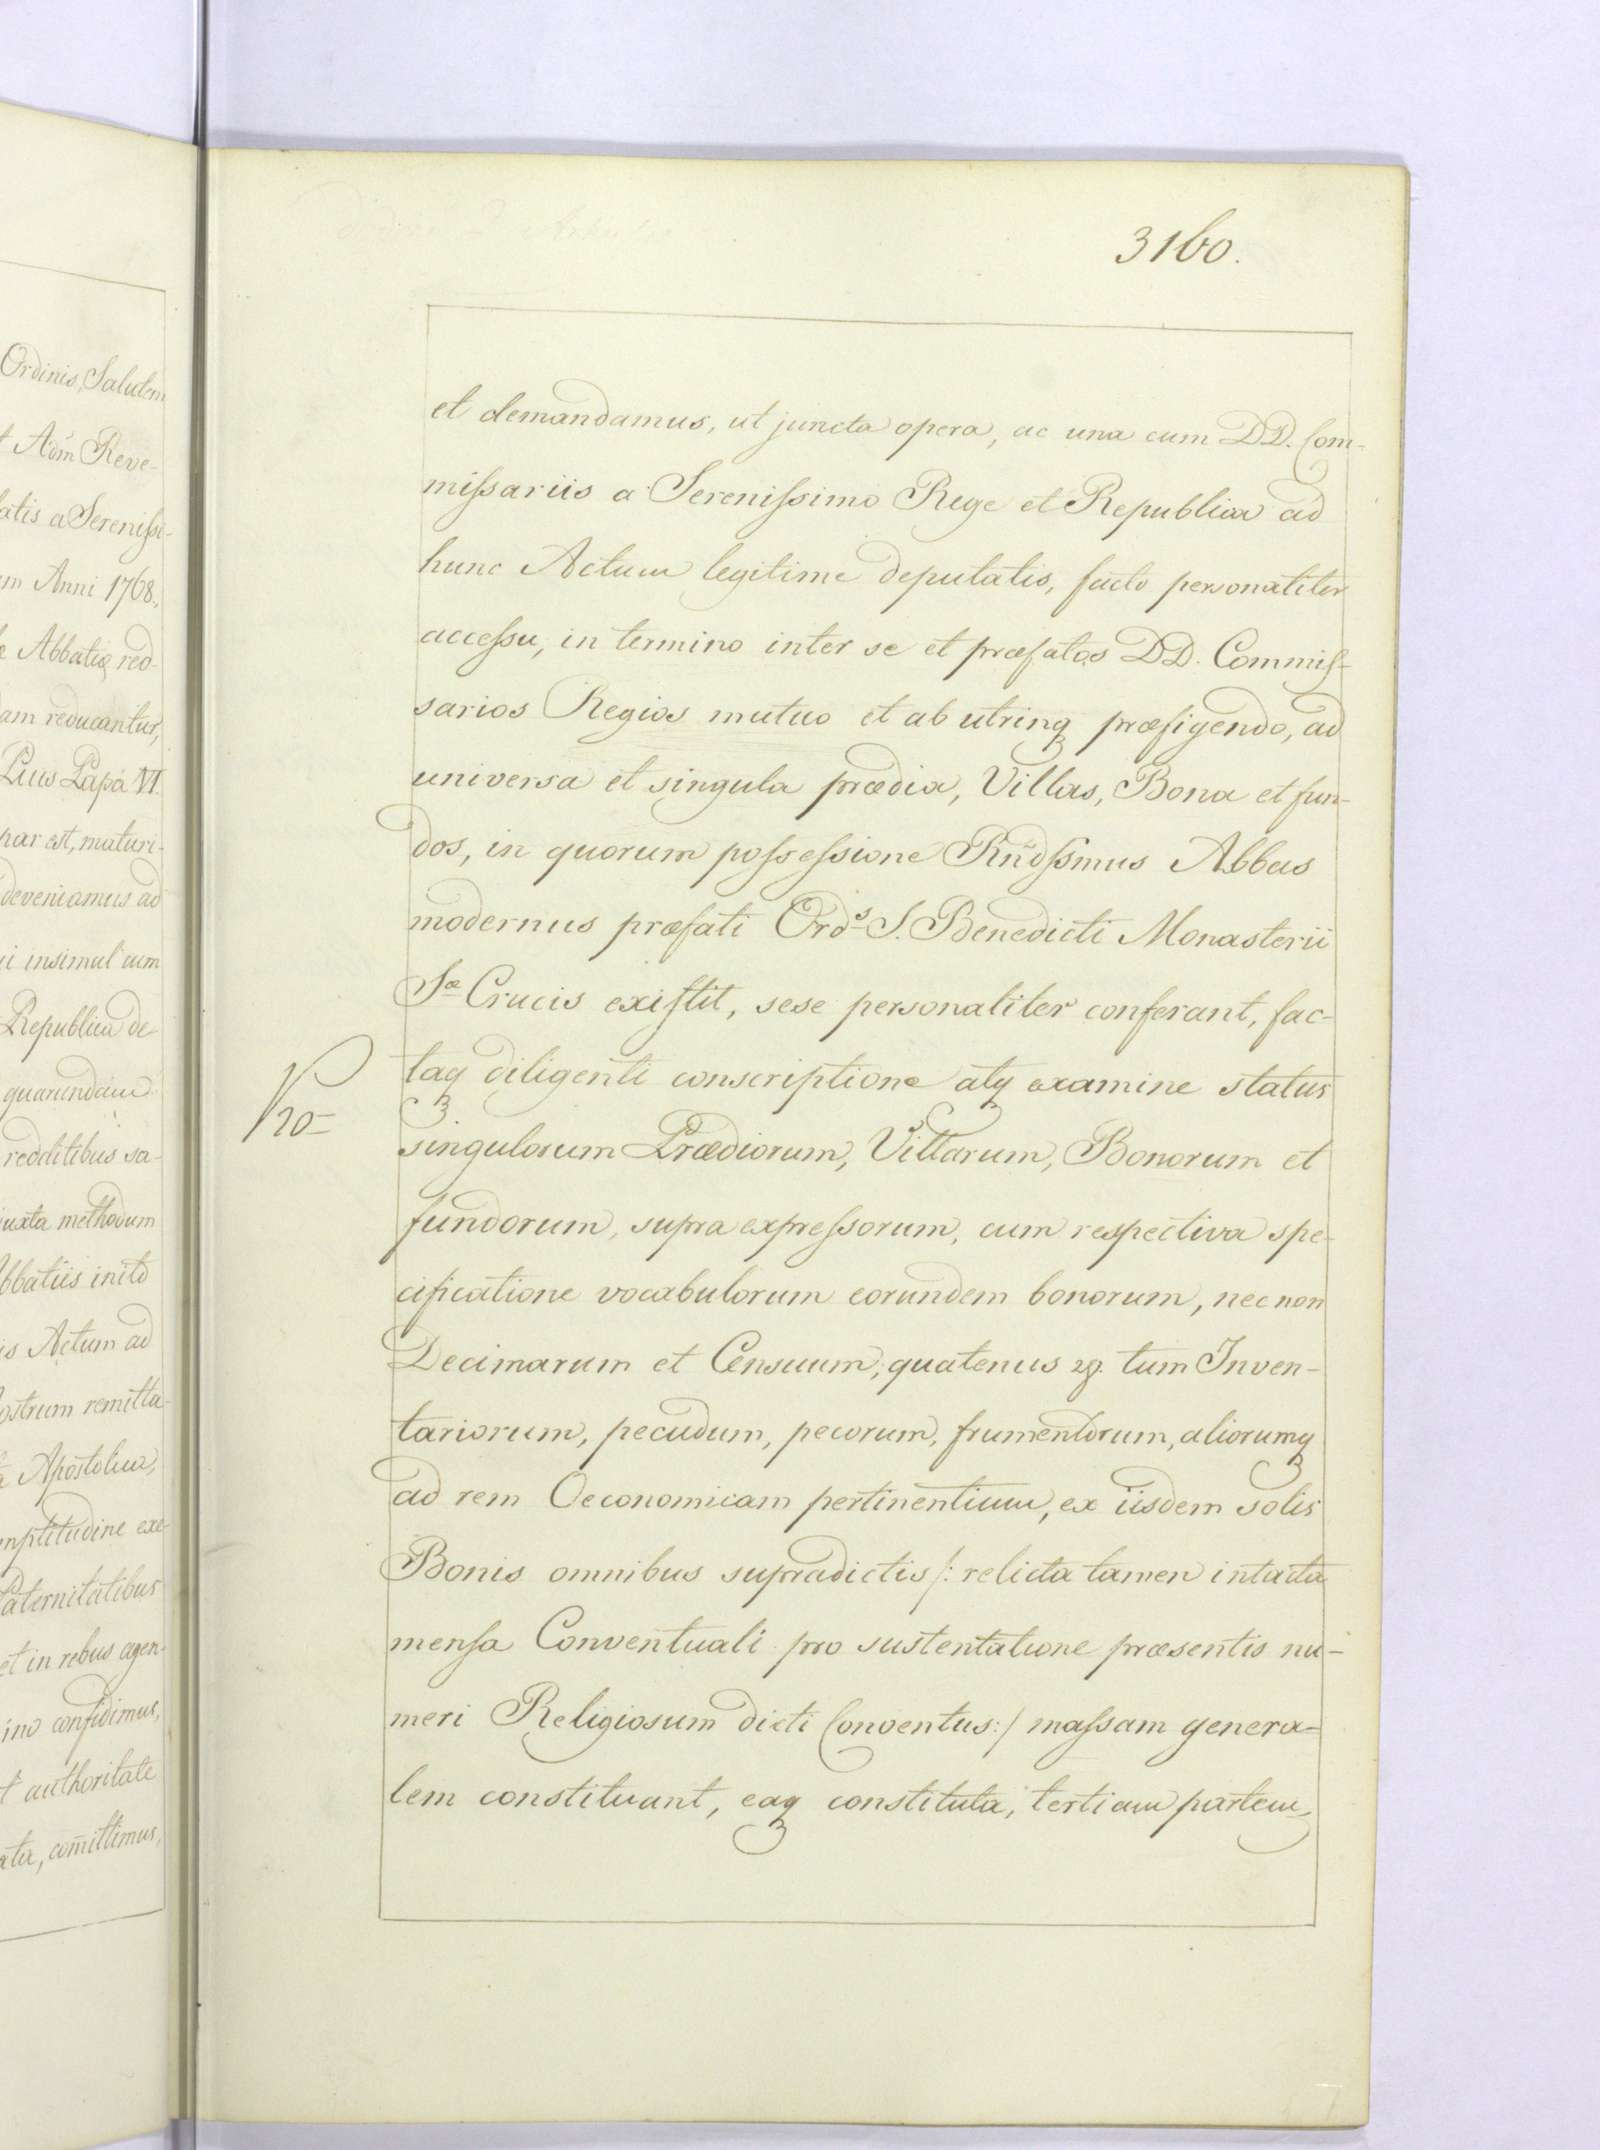 Ordinis, Salutem
Adm̃ Reve-
latis a Serenissi-
Anni 1768.,
Abbatiæ red-
reducantur,
Pius Papa VI.
par est, maturi-
deveniamus ad
insimul cum
Republica de
quarundam
redditibus sa-
juxta methodum
Abbatiis inito
Actum ad
nostrum remitta-
Apostolica,
amplitudine exe-
Paternitatibus
et in rebus agen-
confidimus,
authoritate
com̃ittimus,
3160.
et demandamus, ut juncta opera, ac una cum DD. Com-
missariis a Serenissimo Rege et Republica ad
hunc Actum legitime deputatis, facto personaliter
accessu, in termino inter se et præfatos DD. Commis-
sarios Regios mutuo et ab utrinq præfigendo, ad
universa et singula prædia, Villas, Bona et fun-
dos, in quorum possessione Rñdssmus Abbas
modernus præfati Ords S. Benedicti Monasterii
Sæ Crucis existit, sese personaliter conferant, fac-
taq diligenti conscriptione atq examine status
singulorum Prædiorum, Villarum, Bonorum et
fundorum, supra expressorum, cum respectiva spe-
cificatione vocabulorum eorundem bonorum, nec non
Decimarum et Censuum, quatenus 2g. tum Inven-
tariorum, pecudum, pecorum, frumentorum, aliorumq
ad rem Oeconomicam pertinentium, ex iisdem solis
Bonis omnibus supradictis /: relicta tamen intacta
mensa Conventuali pro sustentatione præsentis nu-
meri Religiosum dicti Conventus :/ massam genera-
lem constituant, eaq constituta, tertiam partem,
20-